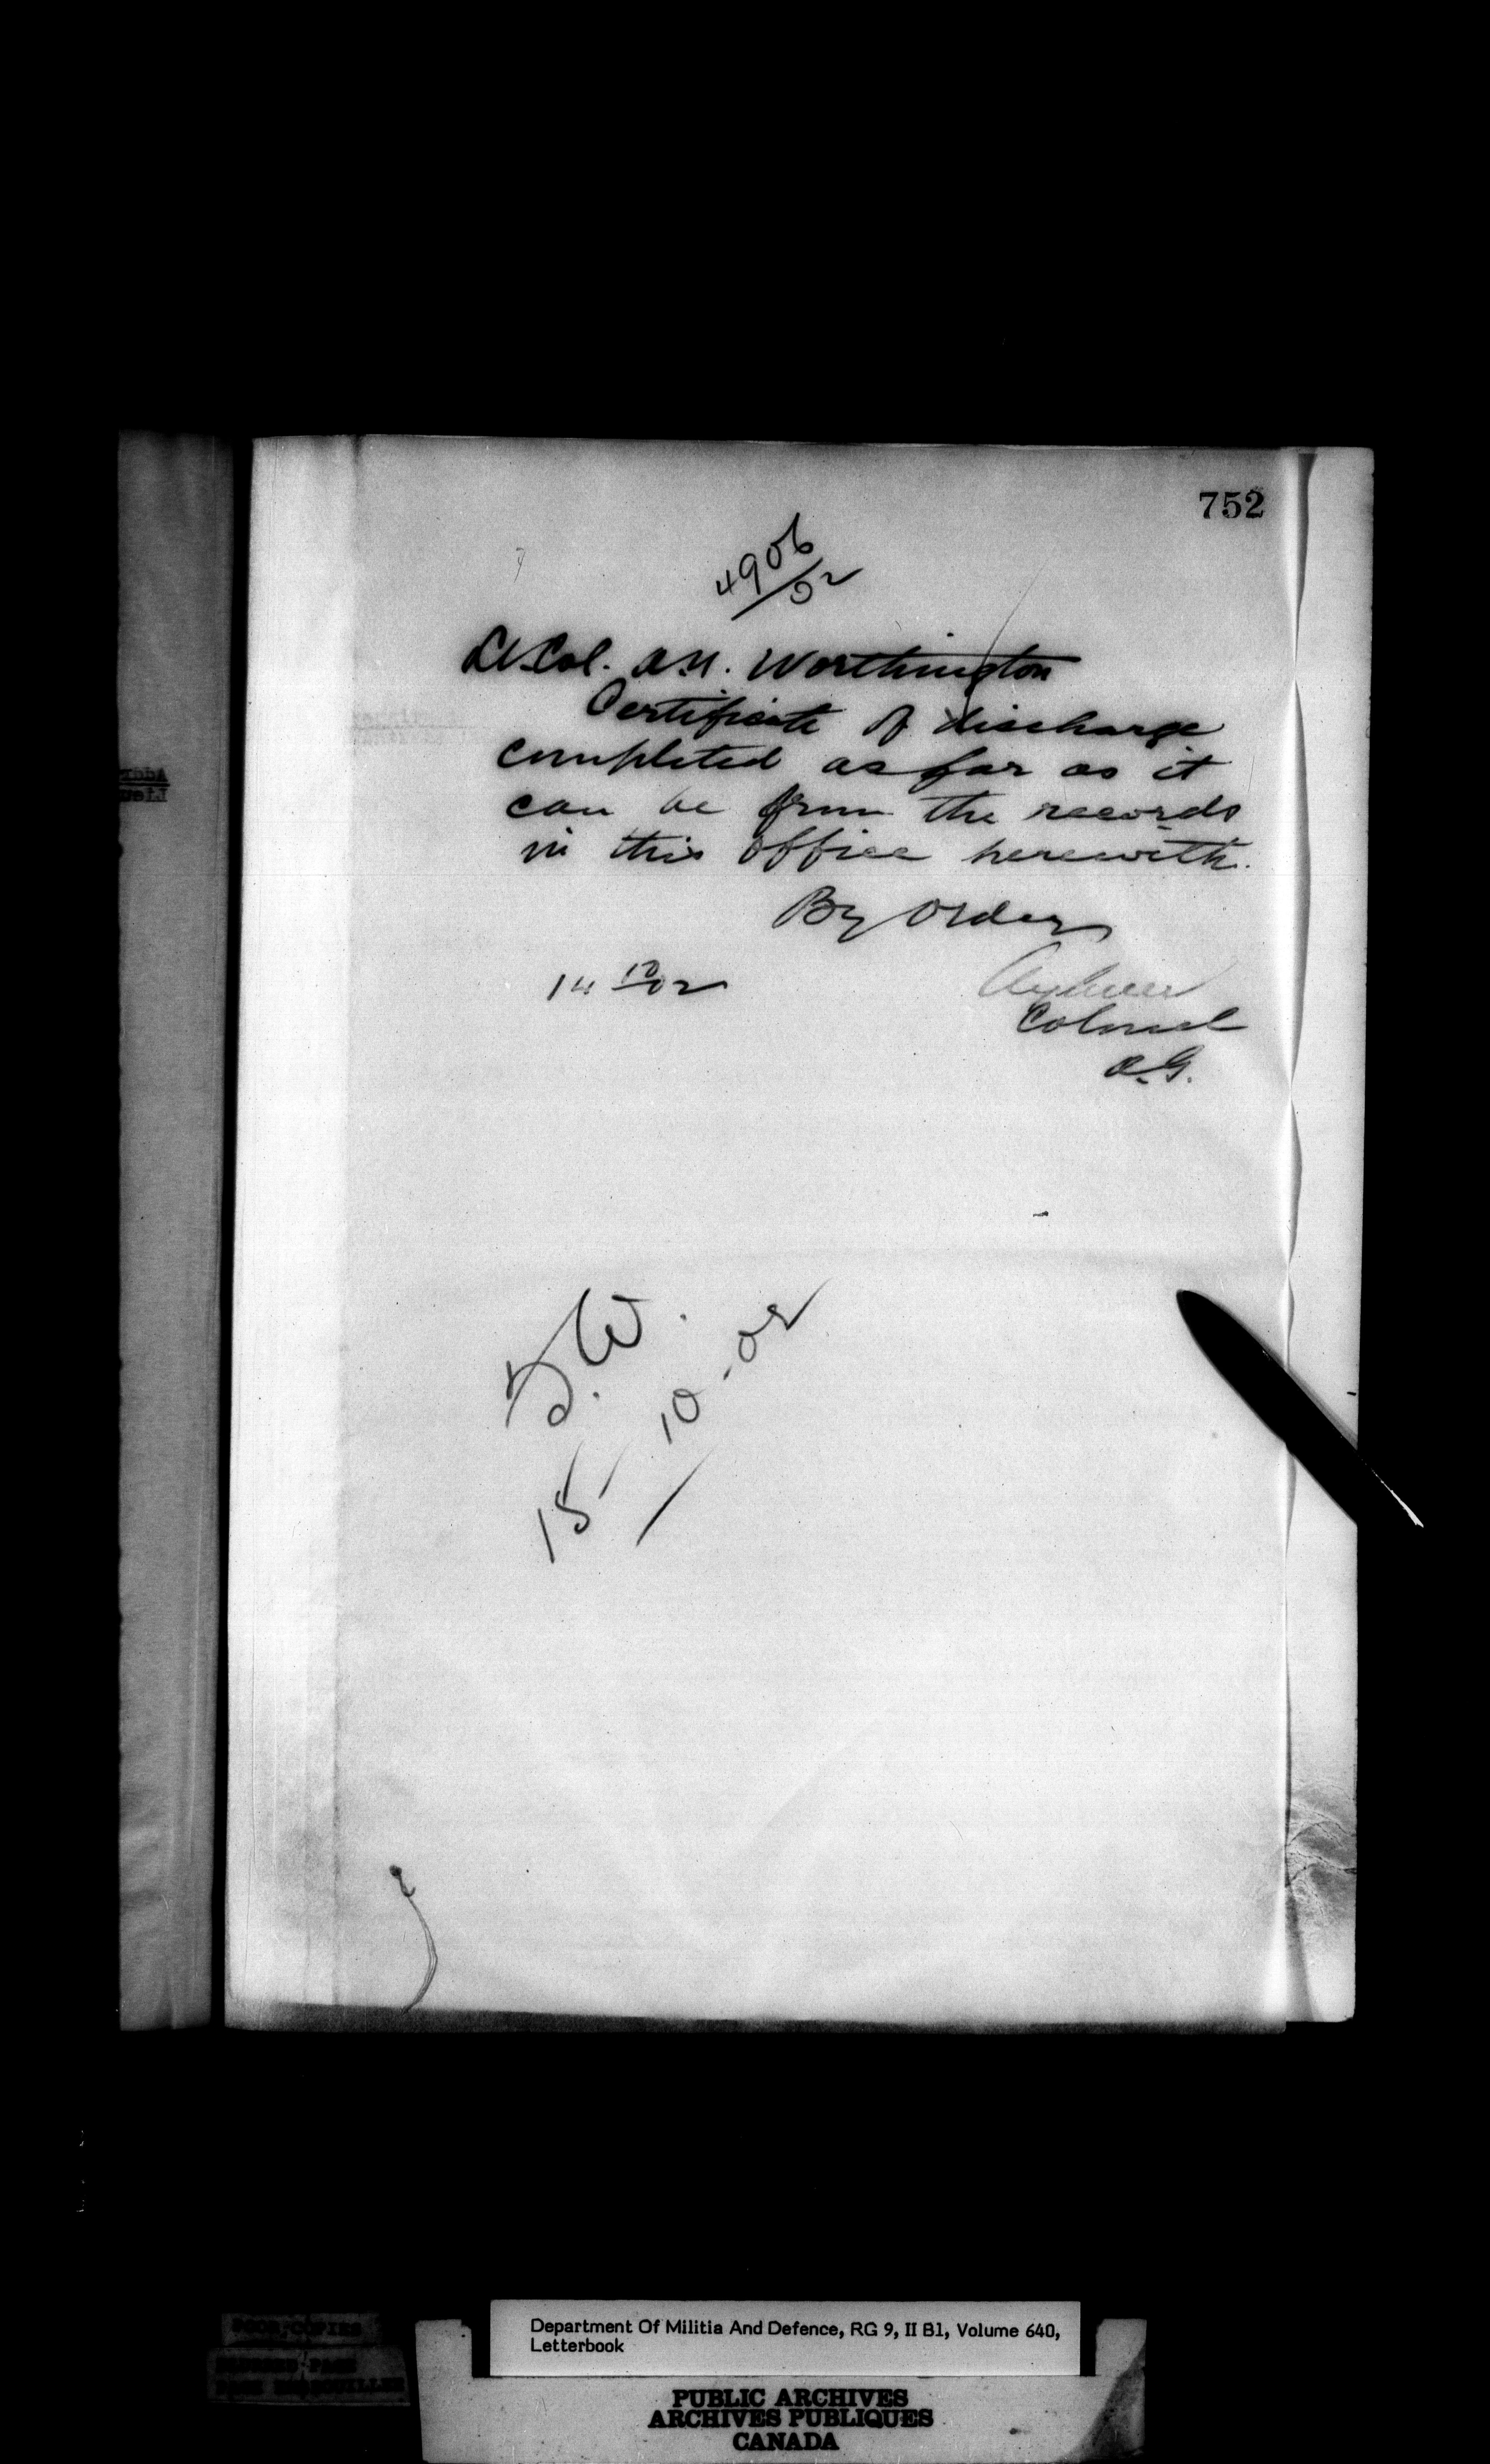 752
4906/02
Lt.Col. A.N. Worthington
Certificate of discharge
completed as far as it
can be from the records
in this office herewith.
By Order
14 10/02
Aylmer
Colonel
A.G.
D.W.
15-10-02
Department Of Militia And Defence, RG 9, II B1, Volume 640,
Letterbook
PUBLIC ARCHIVES
ARCHIVES PUBLIQUES
CANADA